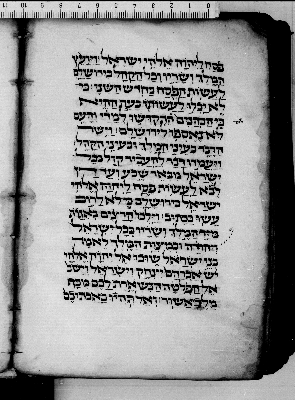 פסח ליהוה אלהי ישראל ויועץ
המלך ושריו וכל הקהל בירושלם
לעשות הפסח בחדש השני כי
לא יכלו לעשותו בעת ההיא
כי הכהנים התקדשו למדי והעם
לא נאספו לירושלם וישר
הדבר בעיני המלך ובעיני הקהל
ויעמידו דבר להעביר קול בכל
ישראל מבאר שבע ועד דן
לבוא לעשות פסח ליהוה אלהי
ישראל בירושלם כי לא לרוב
עשו ככתוב וילכו הרצים באגרות
מיד המלך ושריו בכל ישראל
ויהודה וכמצות המלך לאמר
בני ישראל שובו אל יהוה אלהי
אברהם יצחק וישראל וישב
אל הפליטה הנשארת לכם מכף
מלכי אשור ואל תהיו כאבותיכם